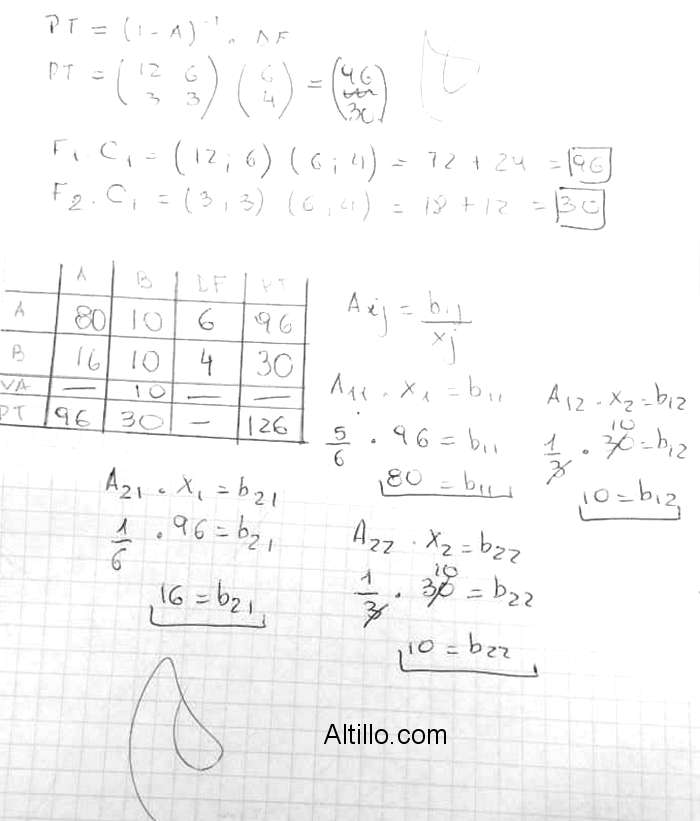 PT = (1 - A)⁻¹ . ΔF
PT = (12 6 / 3 3) (6 / 4) = (46 / 30)
F₁ . C₁ = (12 ; 6) (6 ; 4) = 72 + 24 = 96
F₂ . C₁ = (3 ; 3) (6 ; 4) = 18 + 12 = 30
A B DF PT
A 80 10 6 96
B 16 10 4 30
VA — 10 — —
PT 96 30 — 126
Aij = bij / xj
A₁₁ . x₁ = b₁₁
5/6 . 96 = b₁₁
80 = b₁₁
A₁₂ . x₂ = b₁₂
10
1/3 . 30 = b₁₂
10 = b₁₂
A₂₁ . x₁ = b₂₁
1/6 . 96 = b₂₁
16 = b₂₁
A₂₂ . x₂ = b₂₂
10
1/3 . 30 = b₂₂
10 = b₂₂
Altillo.com